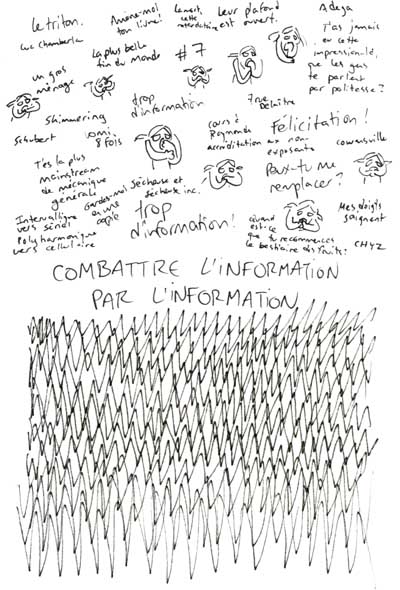 Le triton.
Luc Chamberla
Amène-moi
ton livre!
La plus belle
fin du monde
#7
Leur plafond
est ouvert.
Adega
T'as jamais
eu cette
impression là,
que les gens
te parlent
par politesse?
un gros
ménage
Shimmering
Schubert
vomi
8 fois
trop
d'information
cours à
Raymonde
7 rue
accréditation aux non-
exposants
Félicitation!
Cowansville
T'es la plus
mainstream
de mécanique
générale
Gardez-moi
en une
copie
Sécheuse et
sécheuse inc.
Peux-tu me
remplacer?
Intervalligne
vers
Polyharmonique
vers cellulaire
trop
d'information!
Quand
est-ce
que tu recommences
le bestiaire des fruits?
Mes doigts
saignent
CHYZ
COMBATTRE L'INFORMATION
PAR L'INFORMATION